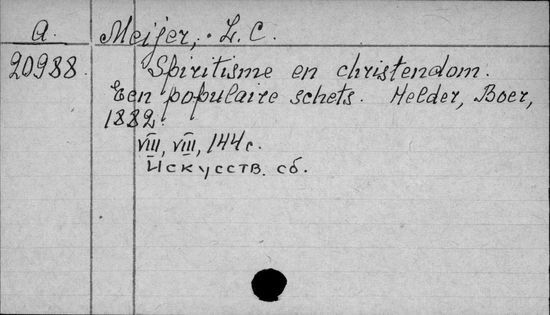 A. Meijer, L. C.
20988. Spiritisme en christendom.
Een populaire schets. Helder, Boer,
1882.
VIII, VIII, 144 с.
Искусств. сб.